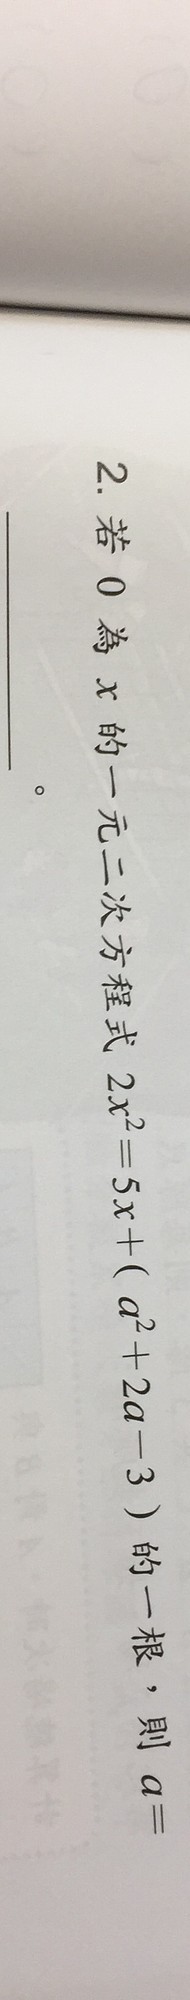 2. 若 0 為 x 的一元二次方程式 2x²=5x+(a²+2a-3)的一根，則 a=
________。